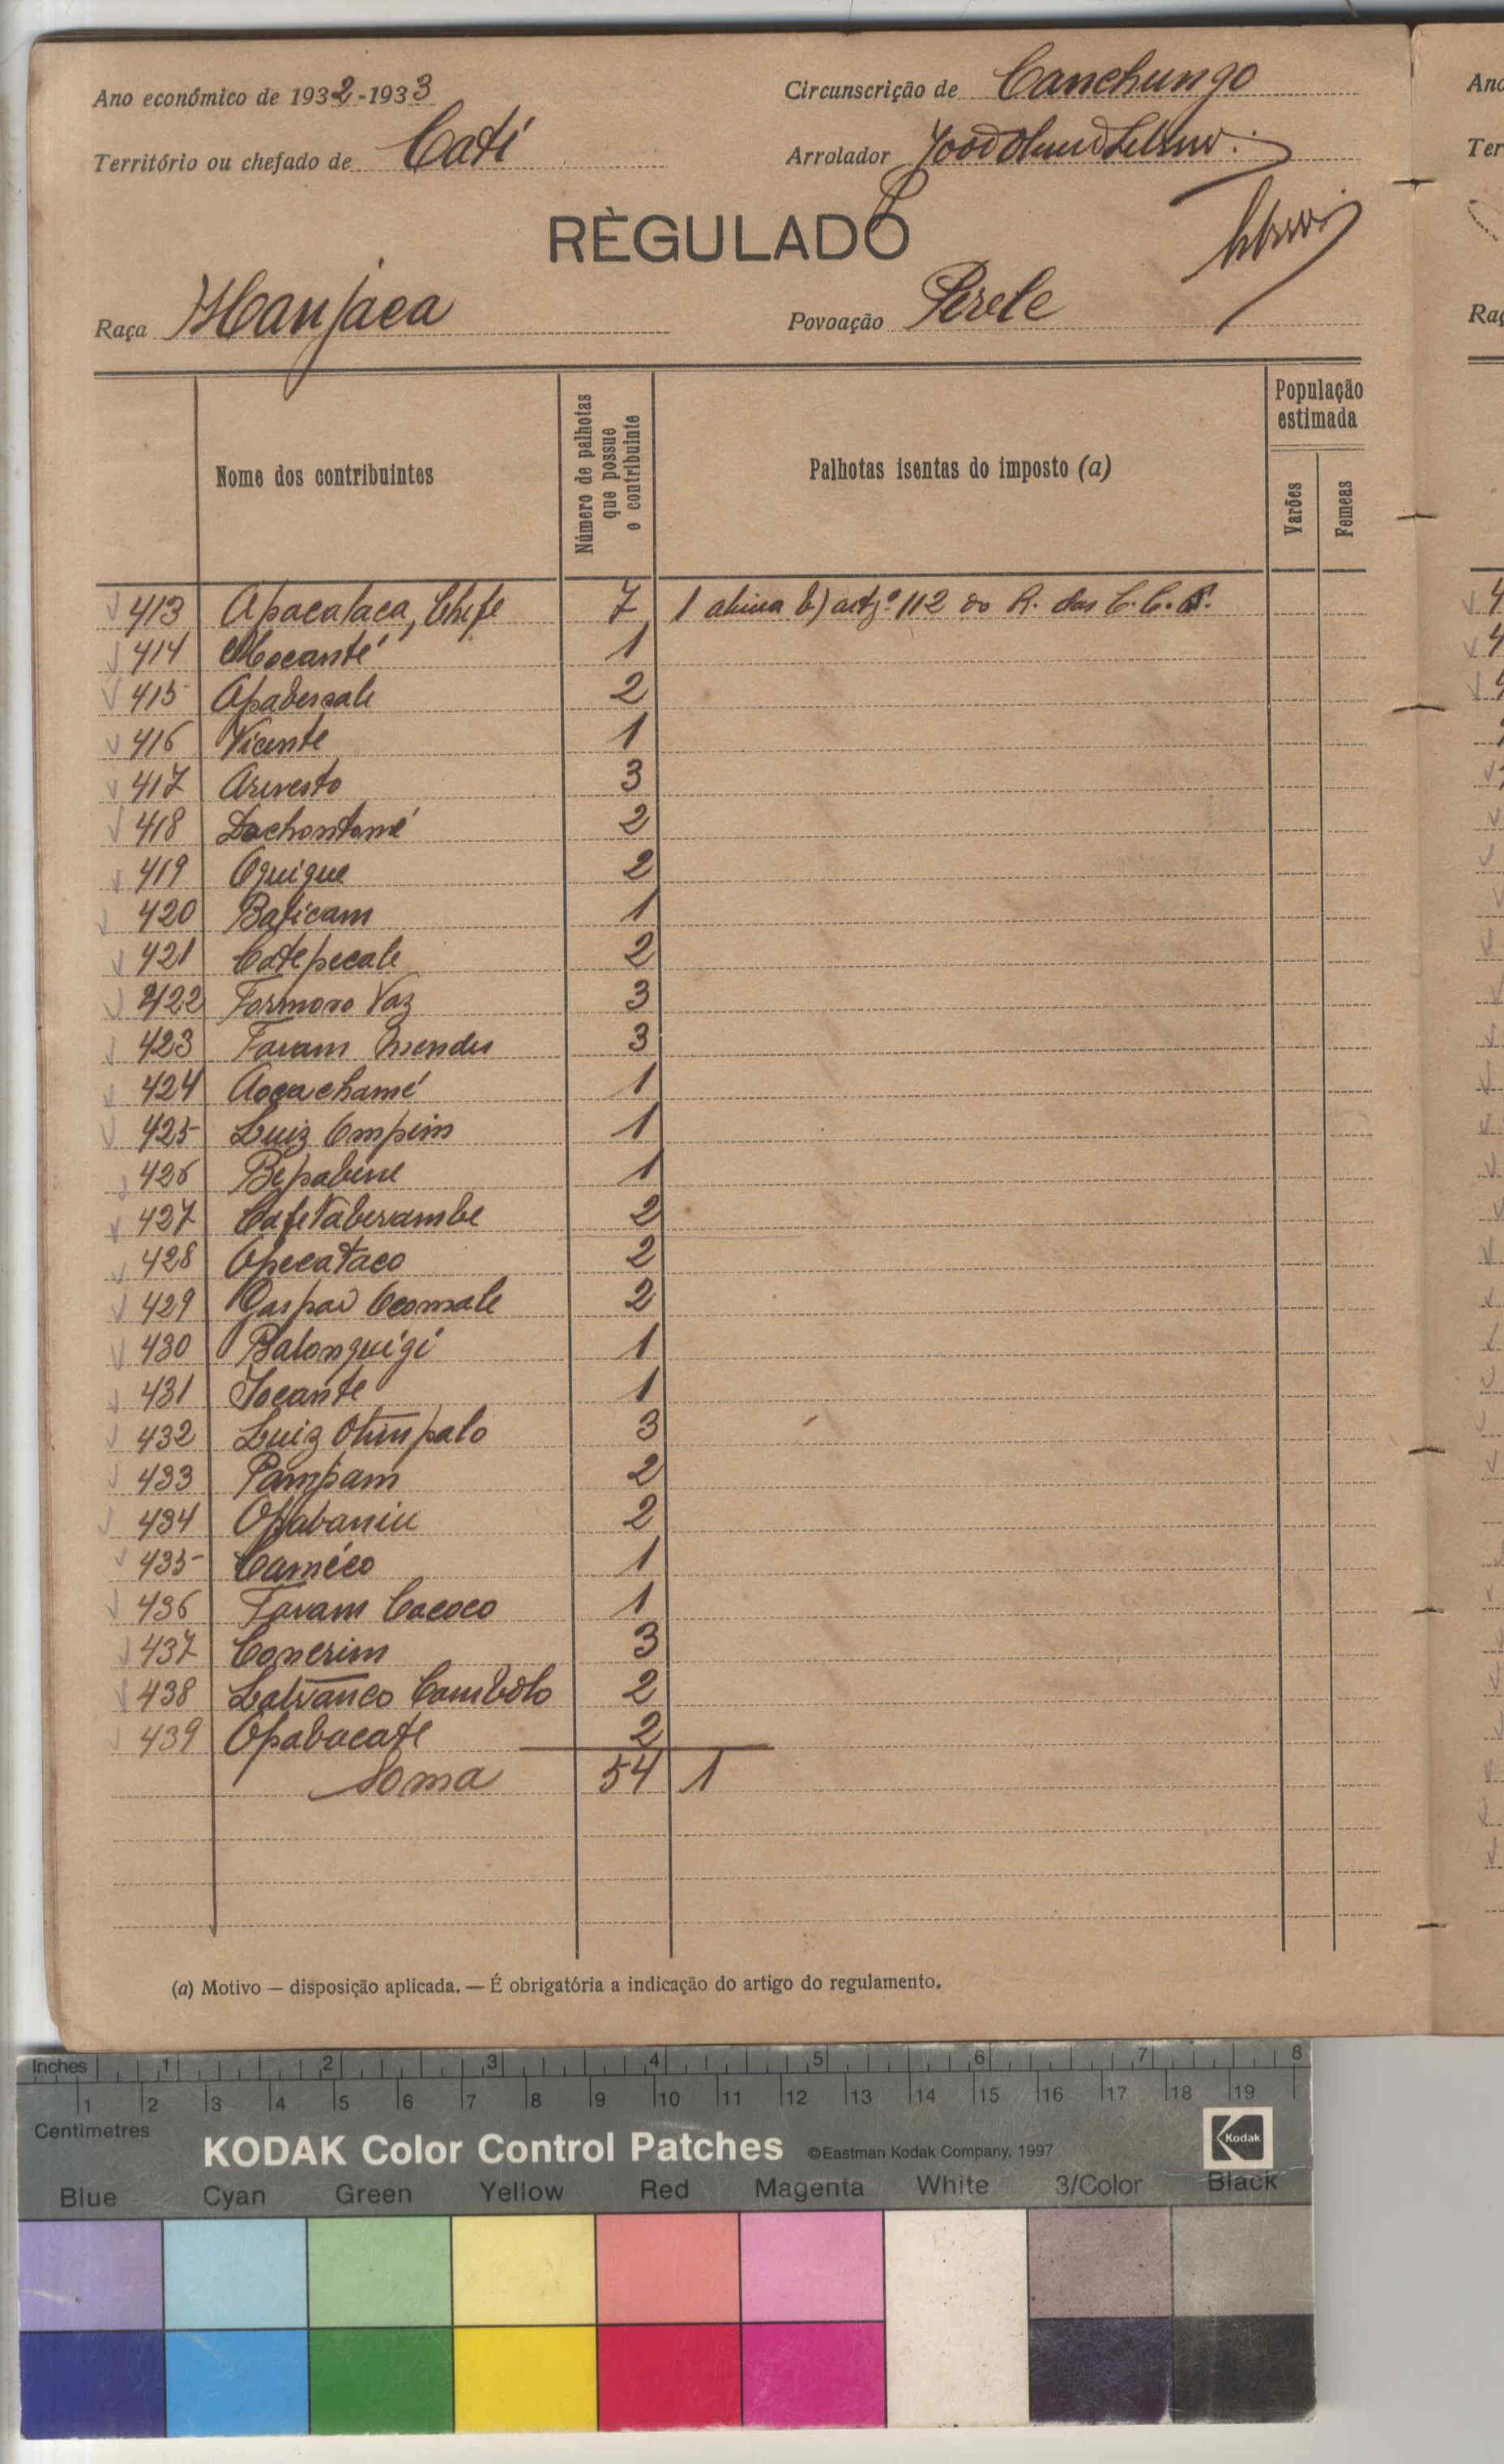 Ano económico de 1932-1933 Circunscrição de Canchungo
Território ou chefado de Cati Arrolador
RÈGULADO
Raça Manjaca Povoação Perele
Nome dos contribuintes
Número de palhotas que possue o contribuinte
Palhotas isentas do imposto (a)
População estimada
Varões
Femeas
413 Apacalaca, Chefe 7 1 alinea b) artg.º 112 do R. das C.C.
414 Mocanté 1
415 Apabersale 2
416 Vicente 1
417 Arevesto 3
418 Dachontomé 2
419 Oquique 2
420 Baticam 1
421 Catepecale 2
422 Formoso Vaz 3
423 Favam Mendes 3
424 1
425 Luiz Compim 1
426 Bepabene 1
427 2
428 Opecataco 2
429 Gaspar 2
430 Balonguigi 1
431 Jocante 1
432 Luiz 3
433 Pampam 2
434 Opabaniu 2
435 Caméco 1
436 Favam Cacoco 1
437 Conerim 3
438 2
439 Opabacate 2
Soma 54 1
(a) Motivo — disposição aplicada. — É obrigatória a indicação do artigo do regulamento.
Ano
Ter
Raç
Inches 1 2 3 4 5 6 7 8
1 2 3 4 5 6 7 8 9 10 11 12 13 14 15 16 17 18 19
Centimetres
KODAK Color Control Patches ©Eastman Kodak Company, 1997 Kodak
Blue Cyan Green Yellow Red Magenta White 3/Color Black